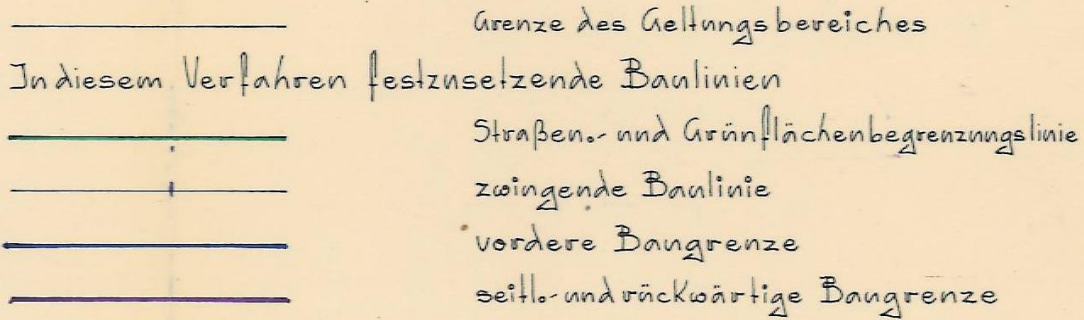 Grenze des Geltungsbereiches
In diesem Verfahren festzusetzende Baulinien
Straßen.- und Grünflächenbegrenzungslinie
zwingende Baulinie
vordere Baugrenze
seitl.- und rückwärtige Baugrenze